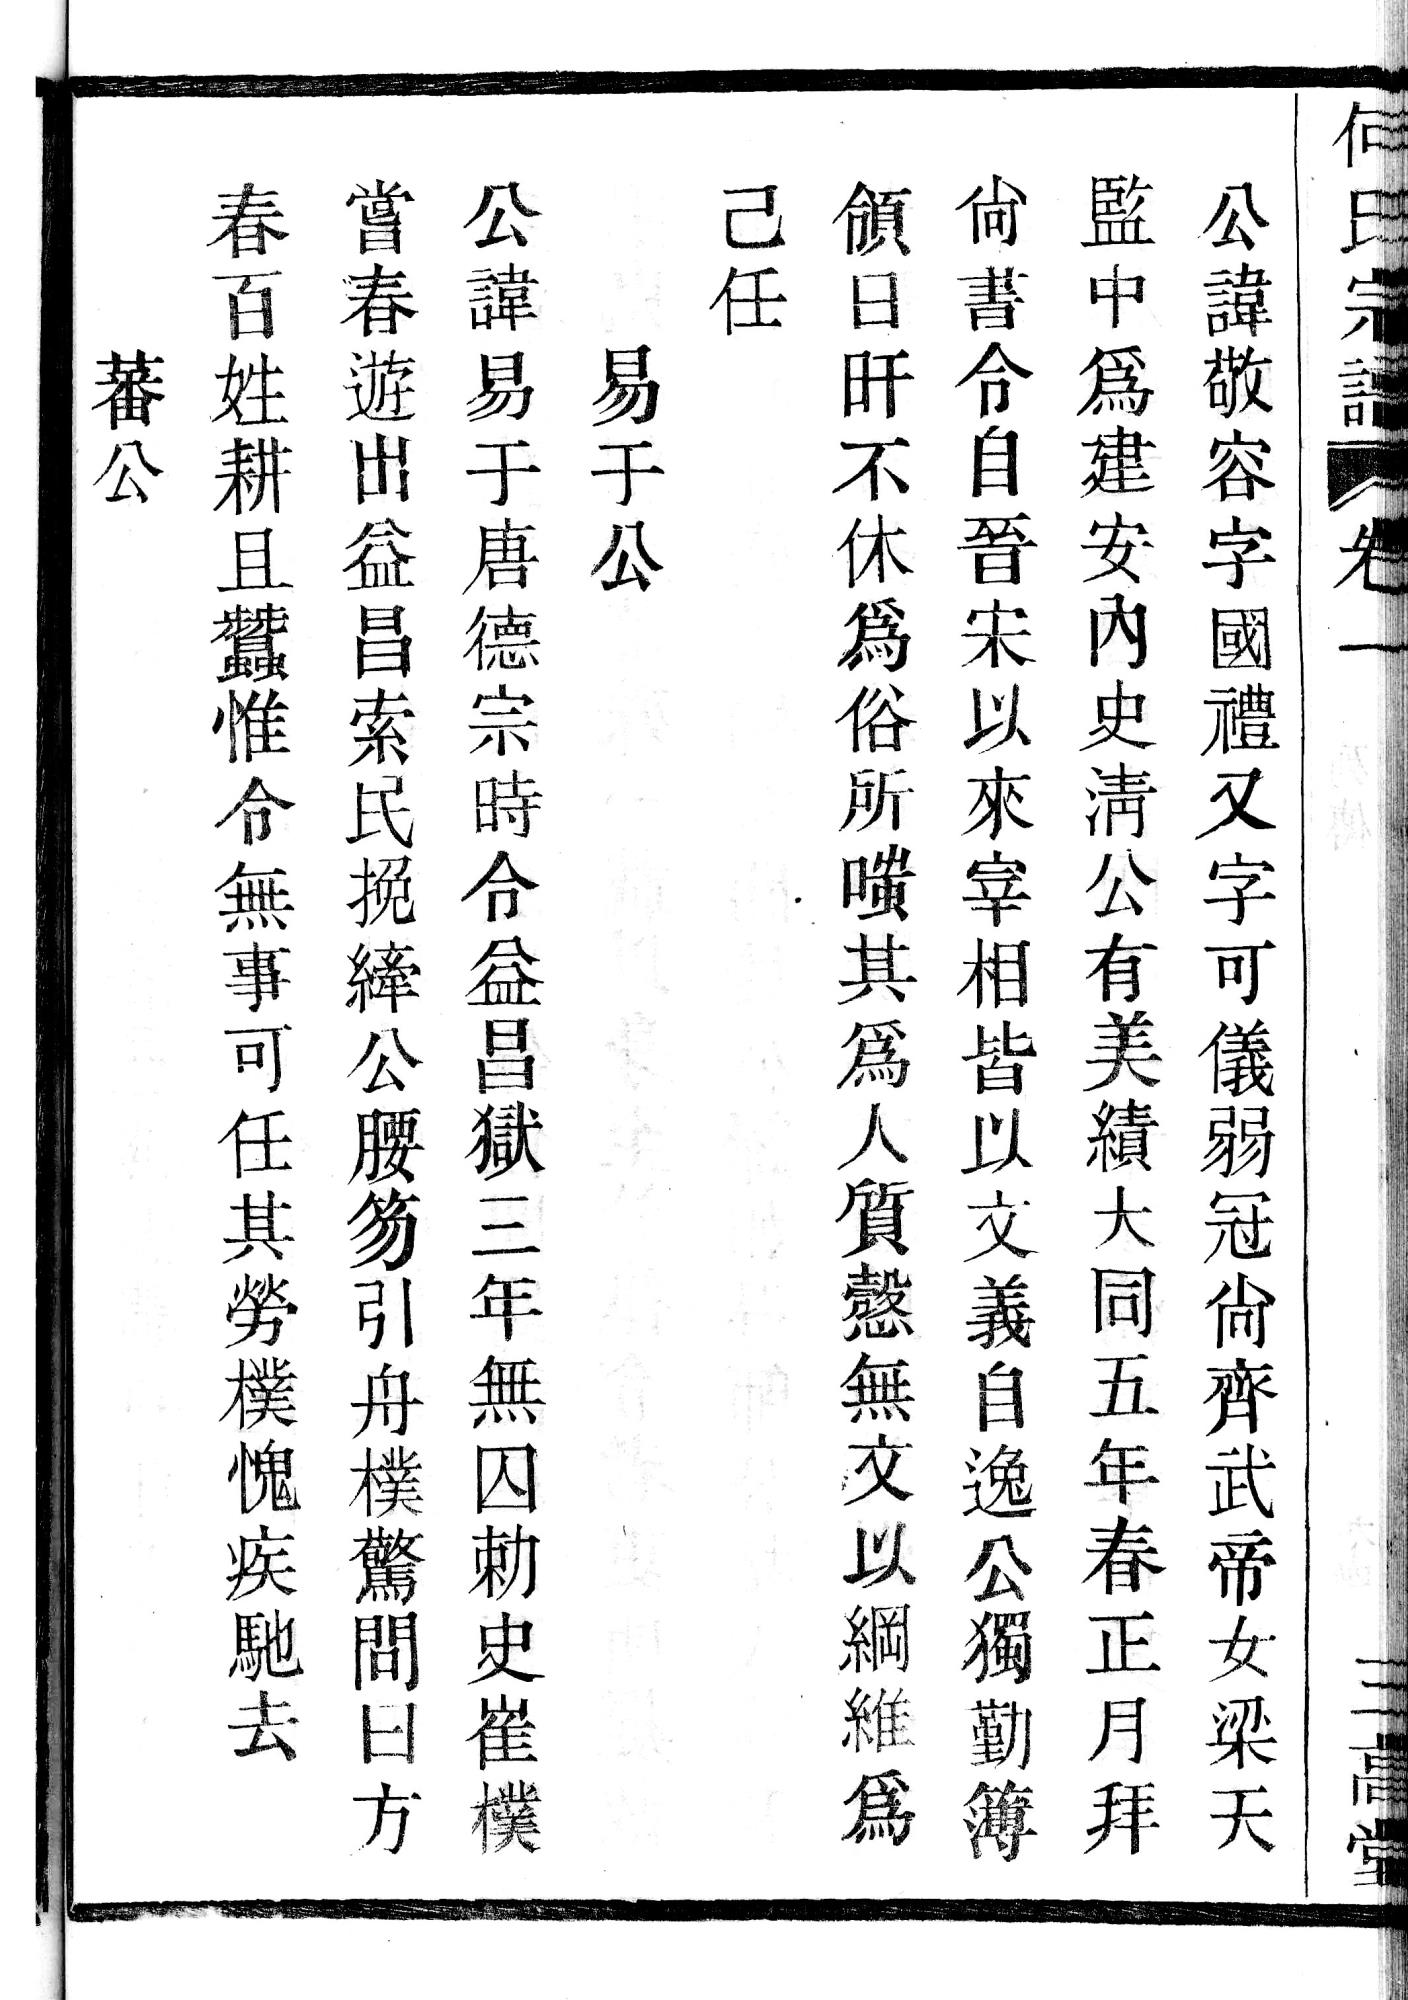 何氏宗譜 卷一 三高堂
公諱敬容字國禮又字可儀弱冠尙齊武帝女梁天
監中爲建安內史淸公有美績大同五年春正月拜
尙書令自晉宋以來宰相皆以文義自逸公獨勤簿
領日旰不休爲俗所嗤其爲人質慤無文以綱維爲
己任
易于公
公諱易于唐德宗時令益昌獄三年無囚勅史崔樸
嘗春遊出益昌索民挽縴公腰笏引舟樸驚問曰方
春百姓耕且蠶惟令無事可任其勞樸愧疾馳去
蕃公